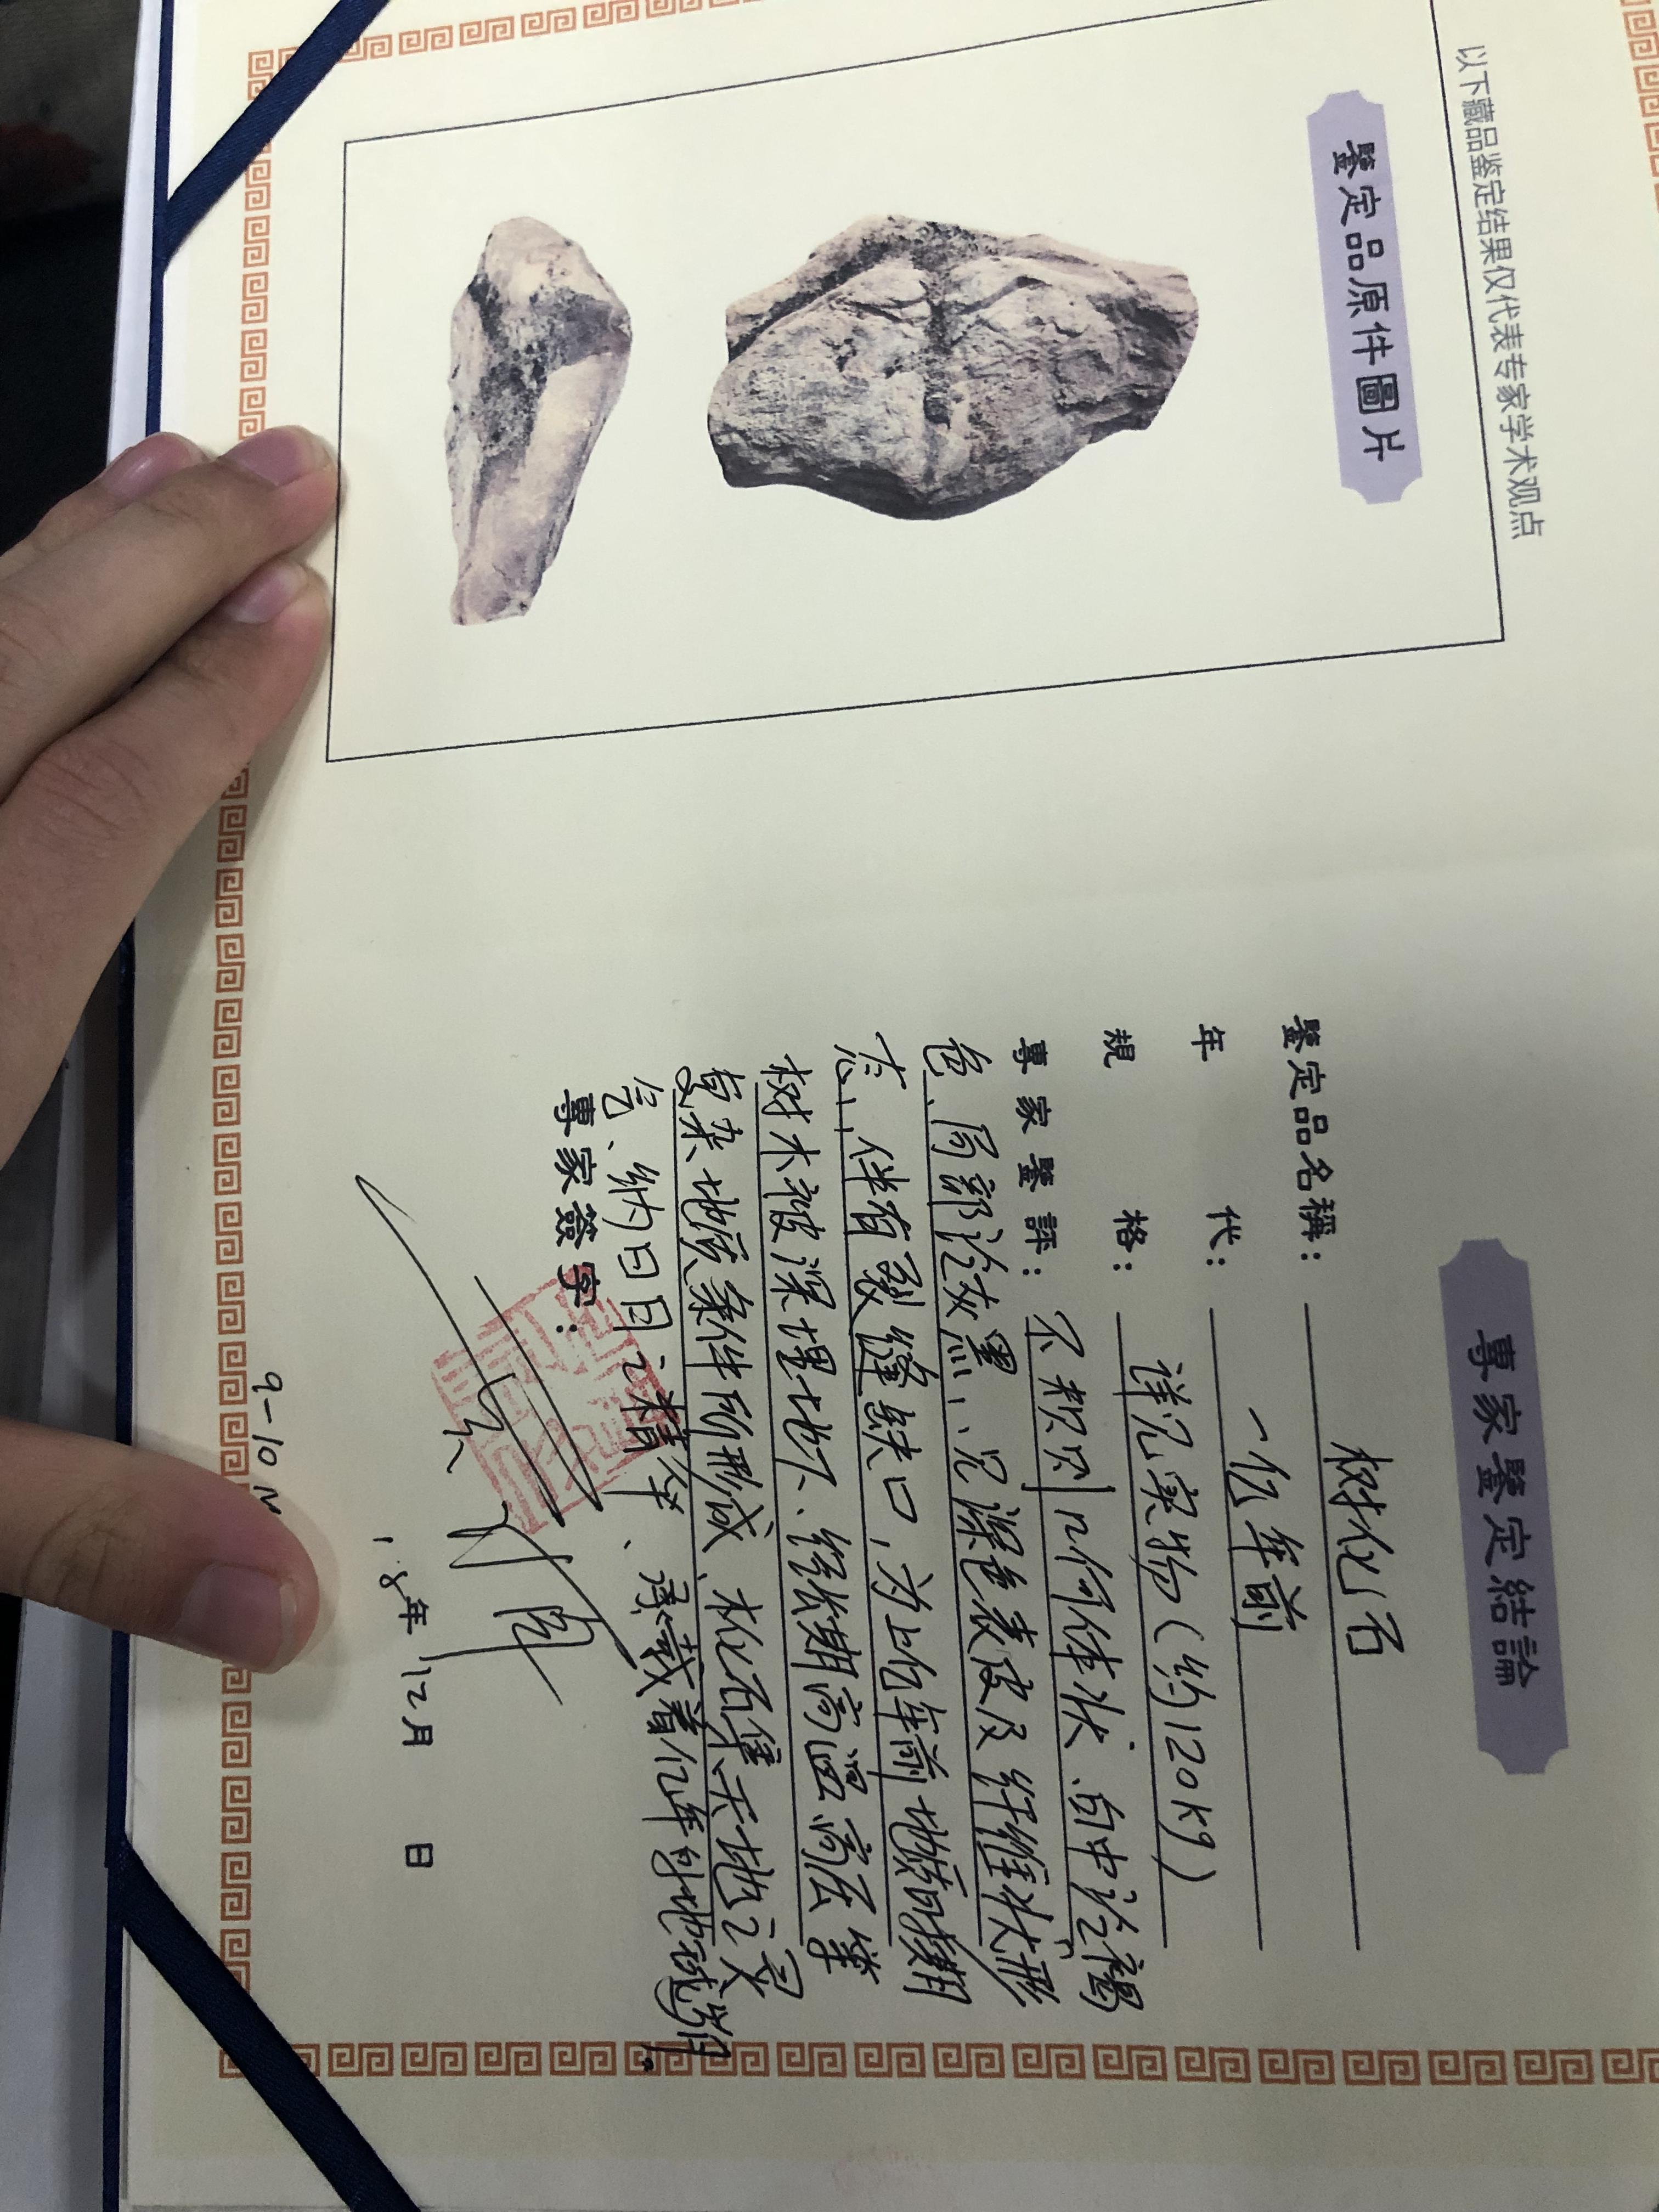 以下藏品鉴定结果仅代表专家学术观点
鑒定品原件圖片
專家鑒定結論
鑒定品名稱： 树化石
年代： 一亿年前
規格： 详见实物（约120kg）
專家鑒評： 不规则几何体状、白中泛褐
色、局部泛灰黑、呈深色表皮及纤维状形
态、伴有裂缝缺口，为上亿年前地质时期
树木被深埋地下、经长期高温高压等
复杂地质条件所形成、木化石集天地之灵
气、纳日月之精华、承载着亿年的地球学阴。
專家簽字：
18年12月 日
9-10W